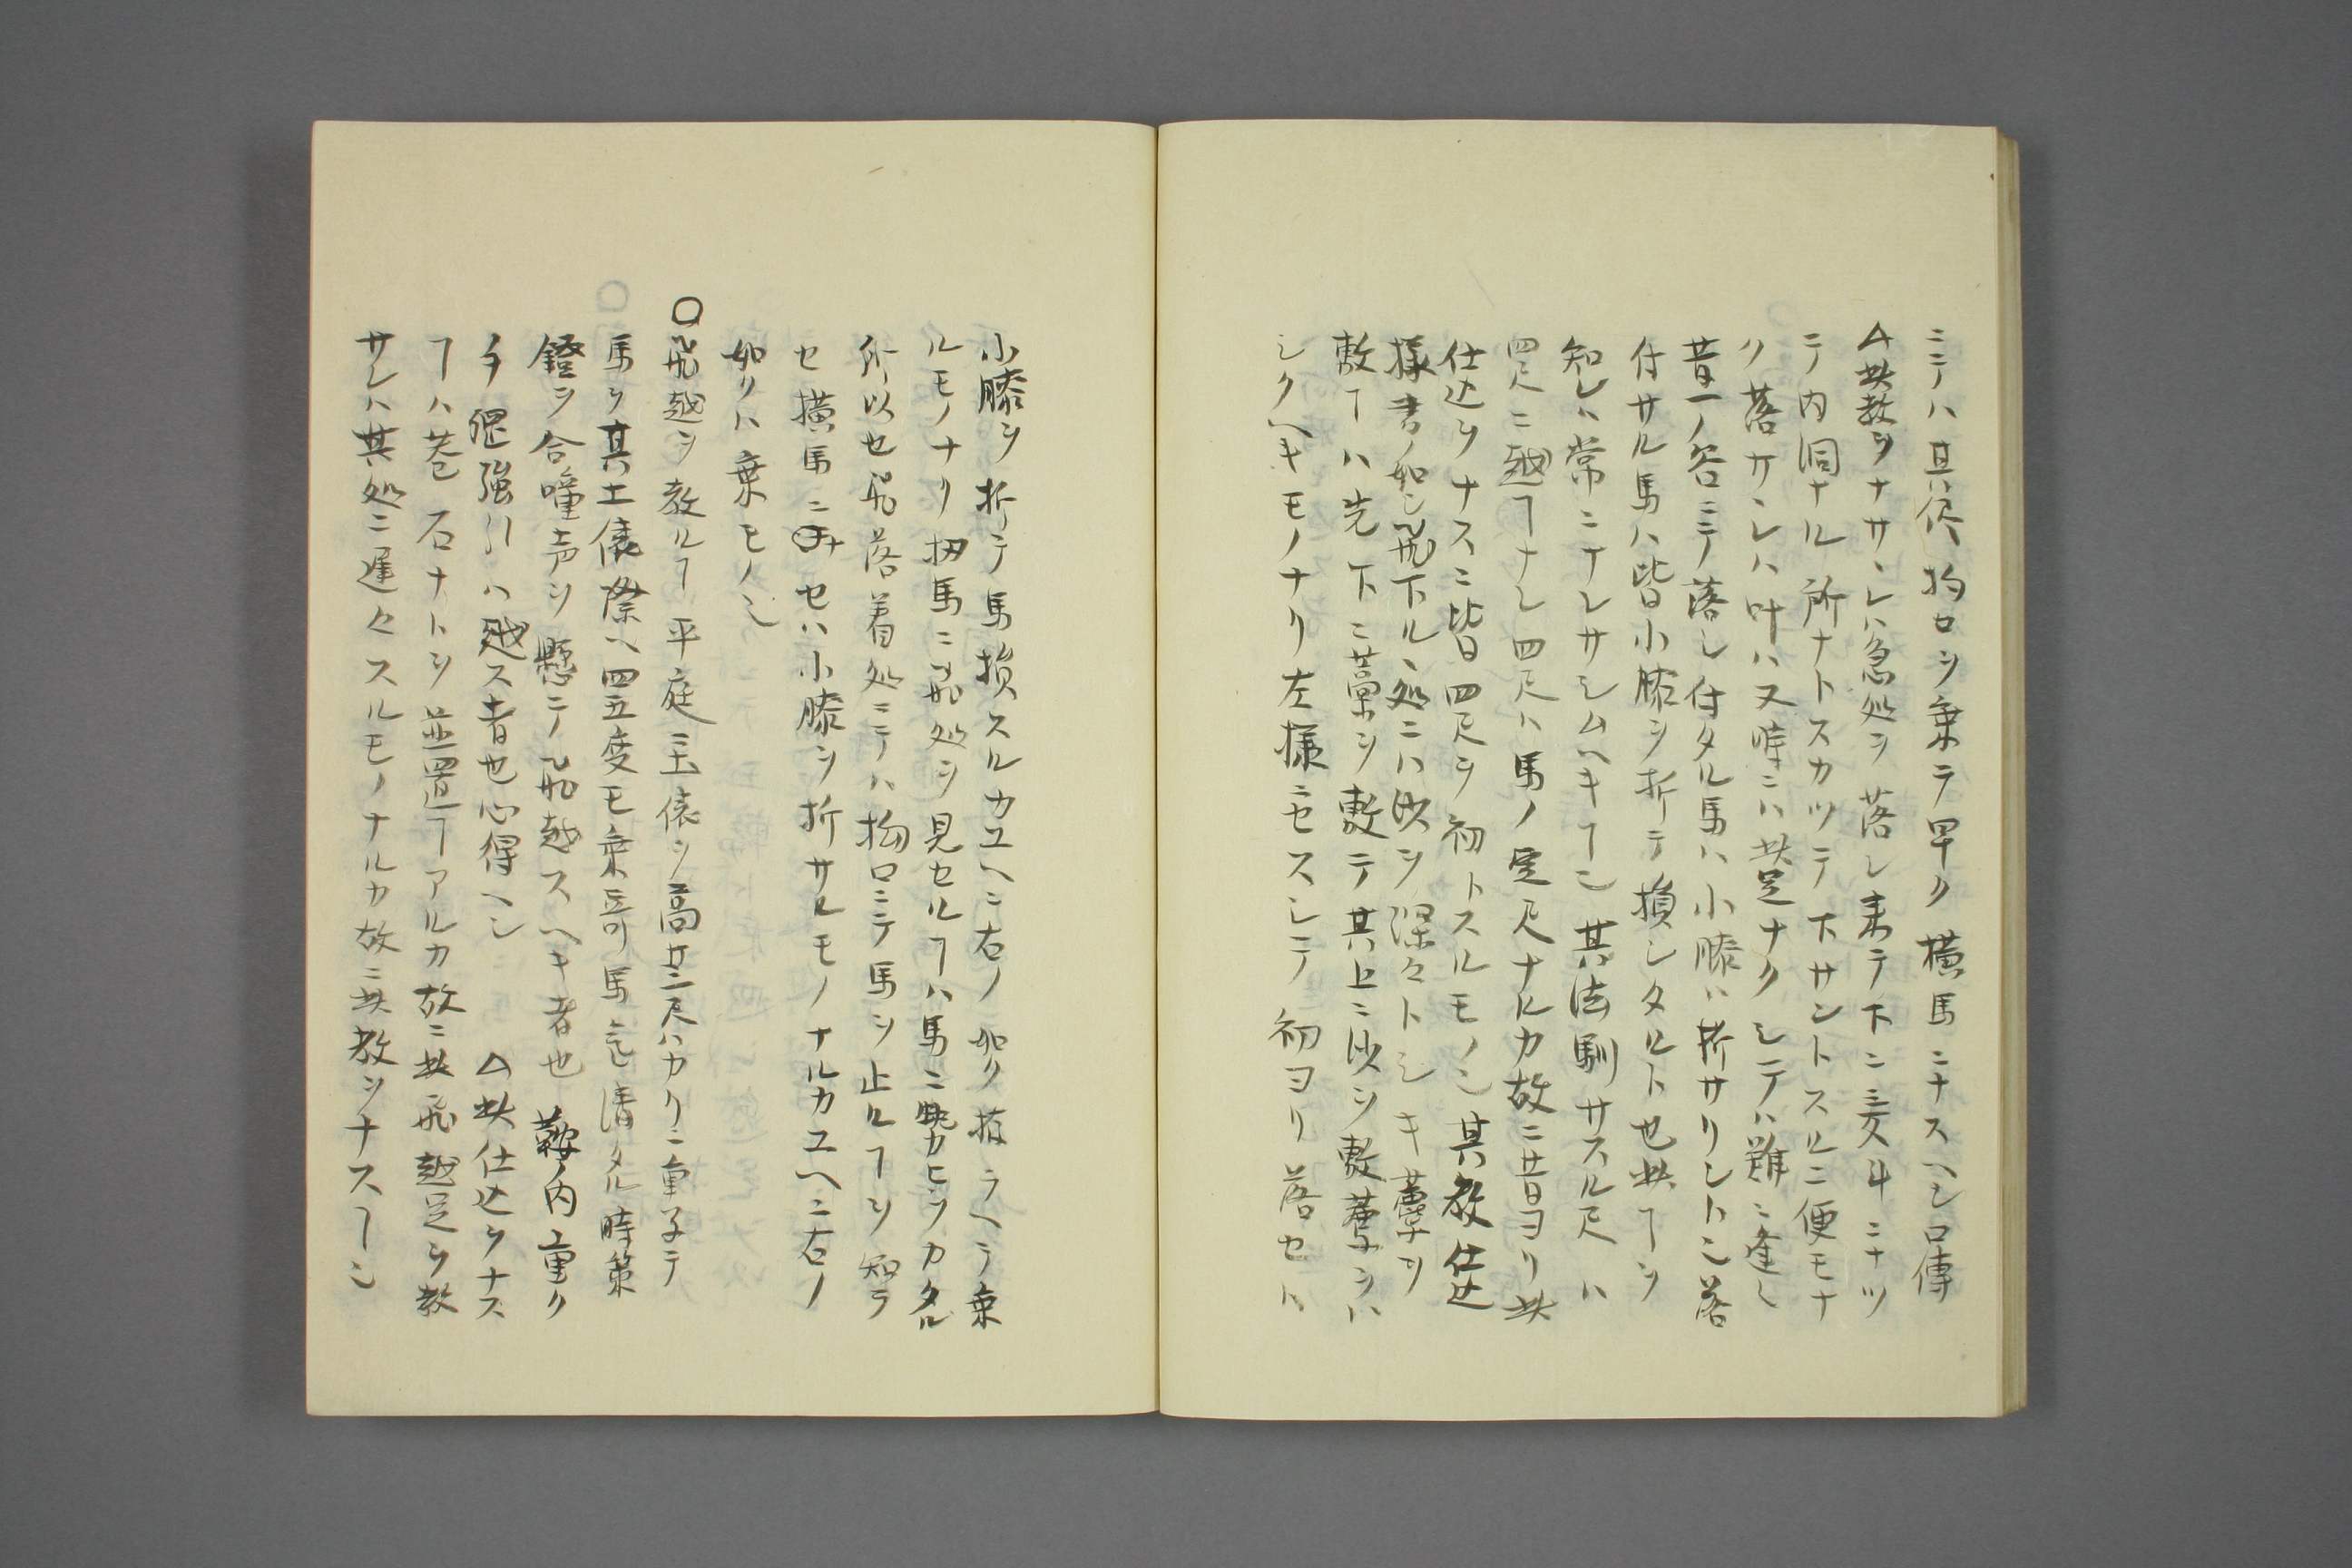 ニテハ其侭拘口シ乗テ早ク横馬ニナスヘシ口傳
△此教ヲナサヽレハ急処ヲ落シ来テ下ニ
ニテ内洞ナル所ナトスカツテ下サントスルニ便モナ
ク落サヽレハ叶ハス又時ニハ此足ナクシテハ難ニ逢シ
昔一ノ谷ニテ落シ付タル馬ハ小膝ハ折サリシトシ落
付サル馬ハ皆小膝ヲ折テ損シタルト也此ヿヲ
知レハ常ニナレサシムヘキヿ也其法馴サスル尺ハ
四尺ニ越ヿナシ四尺ハ馬ノ定尺ナルカ故ニ昔ヨリ此
仕込ヲナスニ皆四尺ヲ初トスルモノ也其教仕込
様書ノ如シ飛下ル処ニハ沙ヲ深々トシキ藁ヲ
敷ヿハ先下ニ藁ヲ敷テ其上ニ沙ヲ敷藁ヲハ
シクヘキモノナリ左様ニセスシテ初ヨリ落セハ
小膝ヲ折テ馬損スルカユヘニ右ノ如ク拵ラヘテ乗
ルモノナリ扨馬ニ飛処ヲ見セルヿハ馬ニ勢ヒヲカタル
所以也飛落着処ニテハ拘口ニテ馬ヲ止ルヿヲ知ラ
セ横馬ニ乗セハ小膝ヲ折サルモノナルカユヘニ右ノ
如クハ乗モノ也
○飛越ヲ教ルヿ平庭ニ土俵ヲ高サ三尺ハカリニ重子テ
馬ヲ其土俵際ヘ四五度モ乗寄馬気清タル時策
鐙ヲ合噇声ヲ懸テ飛越スヘキ者也鞍ノ内重ク
手縄強引ハ越ス者也心得ヘシ △此仕込ヲナス
ヿハ巷石ナトヲ並置ヿアルカ故ニ此飛越足ヲ教
サレハ其処ニ遅々スルモノナルカ故ニ此教ヲナスヿ也